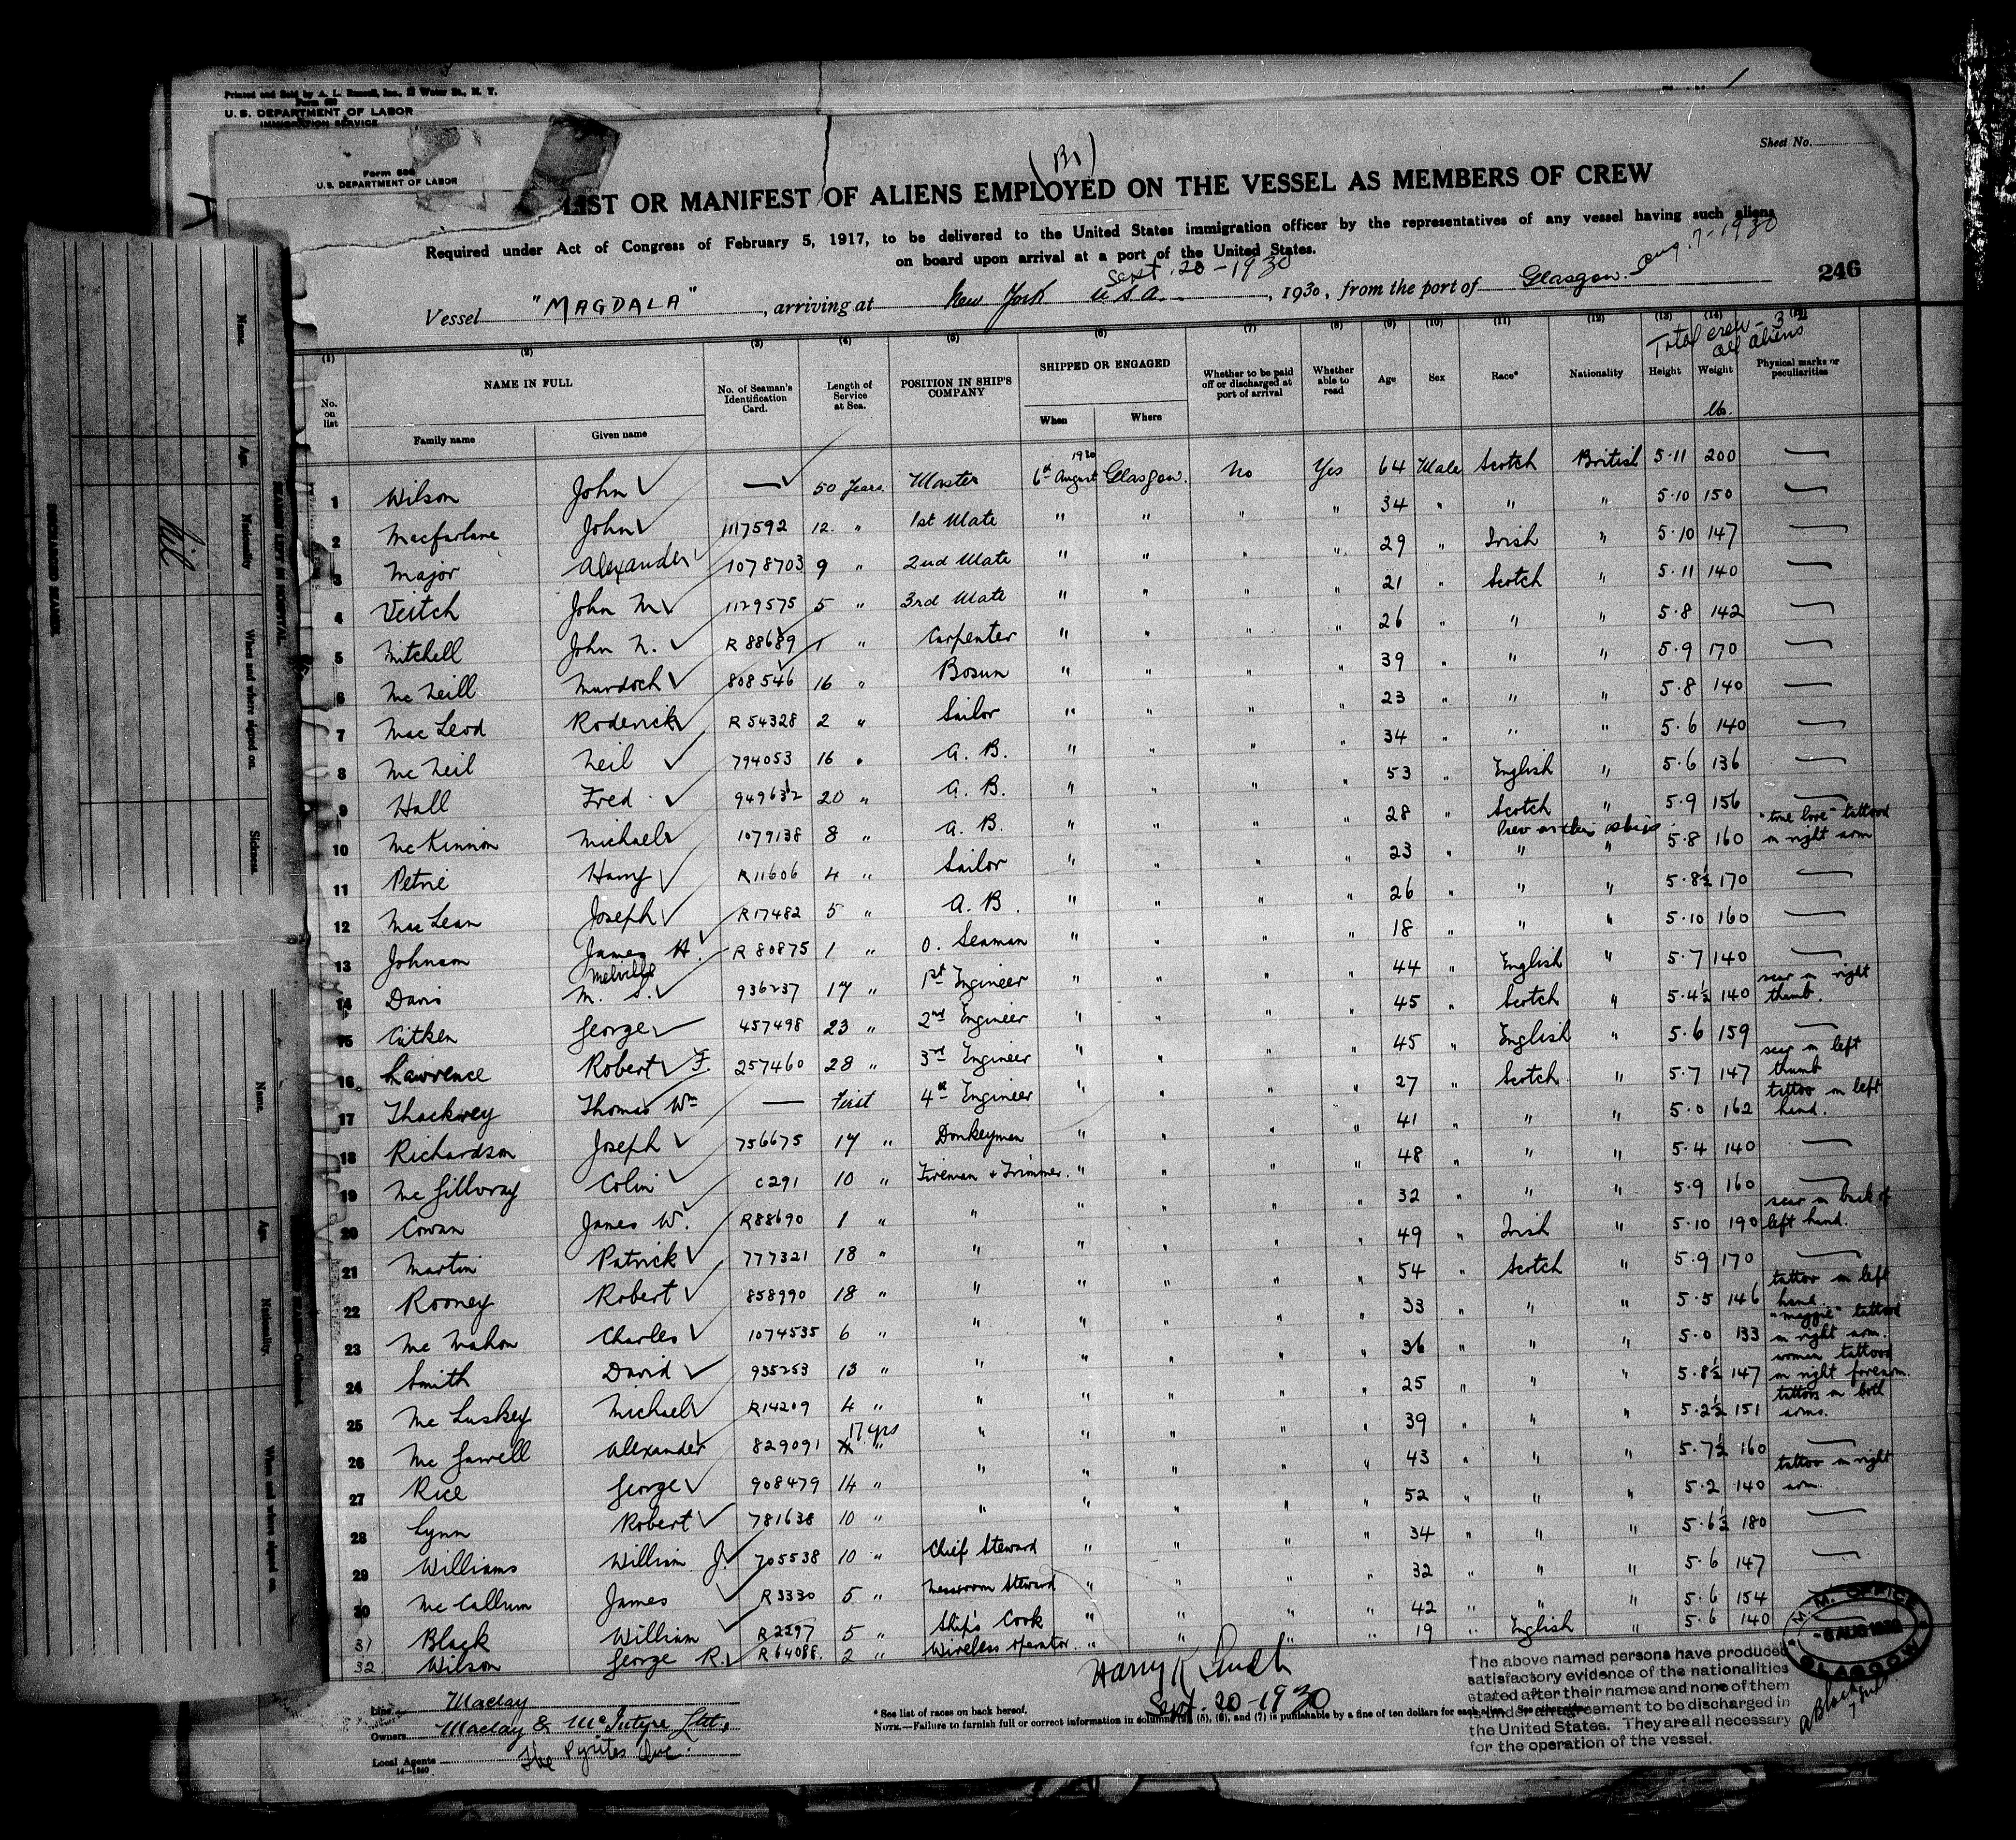 Printed and Sold by A. L. Russell, Inc., Water St., N. Y.
U. S. DEPARTMENT OF LABOR
IMMIGRATION SERVICE
U. S. DEPARTMENT OF LABOR
Sheet No.
LIST OR MANIFEST OF ALIENS EMPLOYED ON THE VESSEL AS MEMBERS OF CREW
Required under Act of Congress of February 5, 1917, to be delivered to the United States immigration officer by the representatives of any vessel having such aliens
on board upon arrival at a port of the United States.
Sept. 20-1930 Aug. 7-1930
Vessel "MAGDALA", arriving at New York U S A, 1930, from the port of Glasgow. 246
Total crew - 3
all aliens
(1) (2) (3) (4) (5) (6) (7) (8) (9) (10) (11) (12) (13) (14)
No. on list NAME IN FULL Family name Given name No. of Seaman's Identification Card. Length of Service at Sea. POSITION IN SHIP'S COMPANY SHIPPED OR ENGAGED When Where Whether to be paid off or discharged at port of arrival Whether able to read Age Sex Race* Nationality Height Weight lb. Physical marks or peculiarities
1 Wilson John — 50 Years Master 1930 6th August Glasgow. No Yes 64 Male Scotch British 5.11 200 —
2 Macfarlane John 1117592 12 " 1st Mate " " " " 34 " " " 5.10 150 —
3 Major Alexander 1078703 9 " 2nd Mate " " " " 29 " Irish " 5.10 147 —
4 Veitch John M 1129575 5 " 3rd Mate " " " " 21 " Scotch " 5.11 140 —
5 Mitchell John N. R 88689 1 " Carpenter " " " " 26 " " " 5.8 142 —
6 Mc Neill Murdoch 808546 16 " Bosun " " " " 39 " " " 5.9 170 —
7 Mac Leod Roderick R 54328 2 " Sailor " " " " 23 " " " 5.8 140 —
8 Mc Neil Neil 794053 16 " A. B. " " " " 34 " " " 5.6 140 —
9 Hall Fred 949632 20 " A. B. " " " " 53 " English " 5.6 136 —
10 Mc Kinnon Michael 1079138 8 " A. B. " " " " 28 " Scotch " 5.9 156 —
11 Petrie Harry R11606 4 " Sailor " " " " 23 " " " 5.8 160 "true love" tattooed on right arm
12 Mac Lean Joseph R17482 5 " A. B. " " " " 26 " " " 5.8½ 170 —
13 Johnson James H. R 80875 1 " O. Seaman " " " " 18 " " " 5.10 160 —
14 Davis Melville M. S. 936237 17 " 1st Engineer " " " " 44 " English " 5.7 140 —
15 Aitken George 457498 23 " 2nd Engineer " " " " 45 " Scotch " 5.4½ 140 scar on right thumb.
16 Lawrence Robert F. 257460 28 " 3rd Engineer " " " " 45 " English " 5.6 159 —
17 Thackrey Thomas Wm — First 4th Engineer " " " " 27 " Scotch " 5.7 147 scar on left thumb
18 Richardson Joseph 756675 17 " Donkeyman " " " " 41 " " " 5.0 162 tattoo on left hand.
19 Mc Gillvray Colin C291 10 " Fireman & Trimmer. " " " " 48 " " " 5.4 140 —
20 Cowan James W. R88690 1 " " " " " " 32 " " " 5.9 160 —
21 Martin Patrick 777321 18 " " " " " " 49 " Irish " 5.10 190 scar on back of left hand.
22 Rooney Robert 858990 18 " " " " " " 54 " Scotch " 5.9 170 —
23 Mc Mahon Charles 1074535 6 " " " " " " 33 " " " 5.5 146 tattoo on left hand.
24 Smith David 935253 13 " " " " " " 36 " " " 5.0 133 "maggie" tattooed on right arm.
25 Mc Luskey Michael R14209 4 " " " " " " 25 " " " 5.8½ 147 women tattooed on right forearm.
26 Mc Alexander 829091 17 yrs " " " " " " 39 " " " 5.2½ 151 tattoos on both arms.
27 Rice George 908479 14 " " " " " " 43 " " " 5.7½ 160 —
28 Lynn Robert 781638 10 " " " " " " 52 " " " 5.2 140 tattoo on right arm.
29 Williams William J. 705538 10 " Chief Steward " " " " 34 " " " 5.6½ 180 —
30 Mc Callum James R3330 5 " Messroom Steward " " " " 32 " " " 5.6 147 —
31 Black William R2297 5 " Ship's Cook " " " " 42 " " " 5.6 154 —
32 Wilson George R. R64088. 2 " Wireless operator. " " " " 19 " English " 5.6 140
Harry R
Sept. 20-1930
Line Maclay
Owners Maclay & McIntyre Ltd,
Local Agents The Pyrites Co.
* See list of races on back hereof.
NOTE.—Failure to furnish full or correct information in columns (5), (6), and (7) is punishable by a fine of ten dollars for each alien.
The above named persons have produced
satisfactory evidence of the nationalities
stated after their names and none of them
is under an agreement to be discharged in
the United States. They are all necessary
for the operation of the vessel.
M. M. OFFICE
6 AUG 1930
GLASGOW
Name.
Age.
Nationality
When and where signed on.
Sickness.
nil
Name.
Age.
Nationality.
When and where signed on.